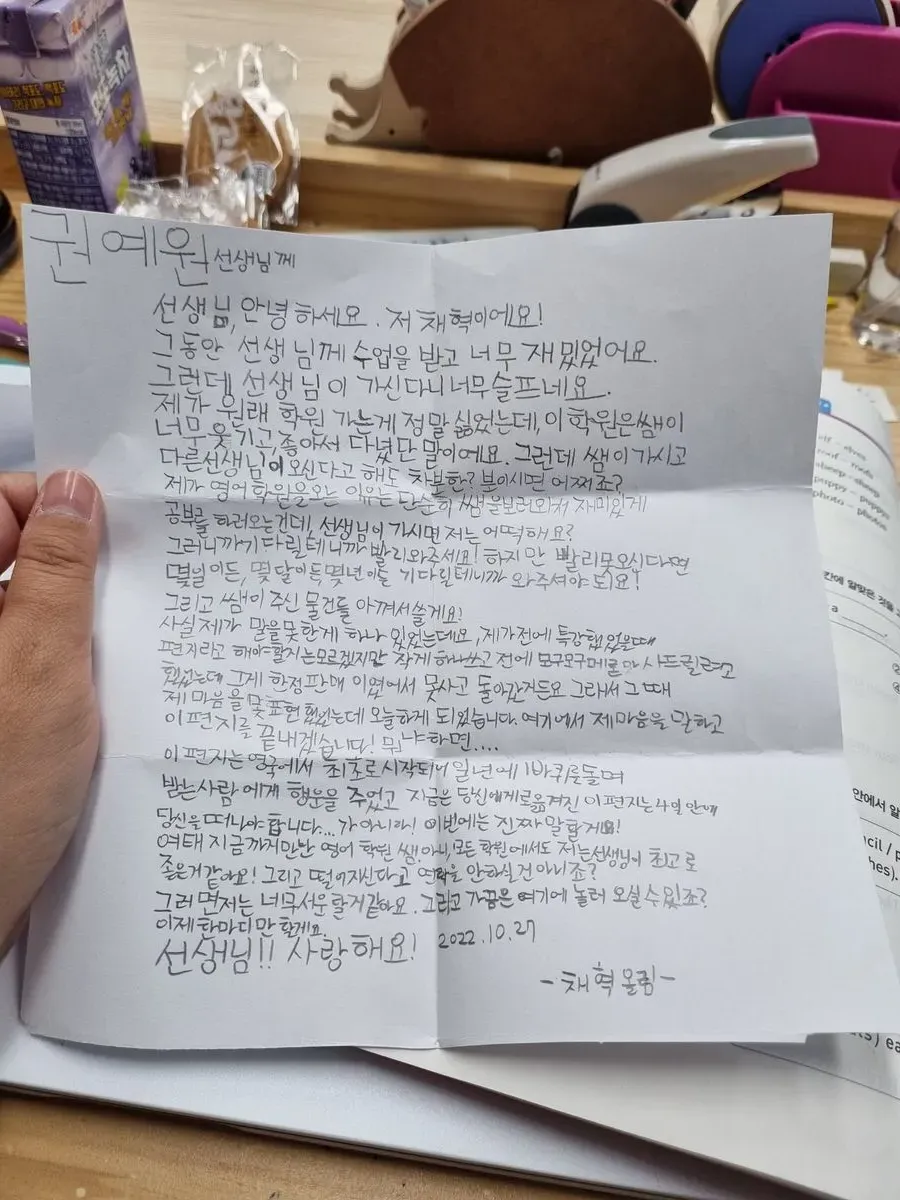 권예원 선생님께
선생님, 안녕하세요. 저 채혁이에요!
그동안 선생님께 수업을 받고 너무 재밌었어요.
그런데 선생님이 가신다니 너무 슬프네요.
제가 원래 학원 가는게 정말 싫었는데, 이 학원은 쌤이
너무 웃기고, 좋아서 다녔단 말이에요. 그런데 쌤이 가시고
다른선생님이 오신다고 해도 차분한? 분이시면 어쩌죠?
제가 영어 학원을 오는 이유는 단순히 쌤을 보러와서 재미있게
공부를 하러오는건데, 선생님이 가시면 저는 어떡해요?
그러니까 기다릴테니까 빨리 와주세요! 하지만 빨리 못오신다면
몇일이든, 몇 달이든, 몇년이든 기다릴테니까 와주셔야 되요!
그리고 쌤이 주신 물건들 아껴서 쓸게요!
사실 제가 말을 못한게 하나 있었는데요, 제가 전에 특강했었을때
편지라고 해야할지는 모르겠지만 작게 하나 쓰고 전에 모구모구 사드릴려고
했었는데 그게 한정판매 이였어서 못사고 돌아갔거든요 그래서 그때
제 마음을 못표현 했었는데 오늘하게 되었습니다. 여기에서 제마음을 말하고
이 편지를 끝내겠습니다! 뭐냐하면....
이 편지는 영국에서 최초로 시작되어 일년에 1바퀴를 돌며
받는사람에게 행운을 주었고 지금은 당신에게로 옮겨진 이 편지는 4일 안에
당신을 떠나야 합니다... 가 아니라! 이번에는 진짜 말할게요!
여태 지금까지 만난 영어 학원 쌤, 아니, 모든 학원에서도 저는 선생님이 최고로
좋은거 같아요! 그리고 떨어지신다고 연락을 안하실건 아니죠?
그러면 저는 너무 서운할거 같아요. 그리고 가끔은 여기에 놀러 오실 수 있죠?
이제 한마디만 할게요.
선생님!! 사랑해요! 2022.10.27
- 채혁 올림 -